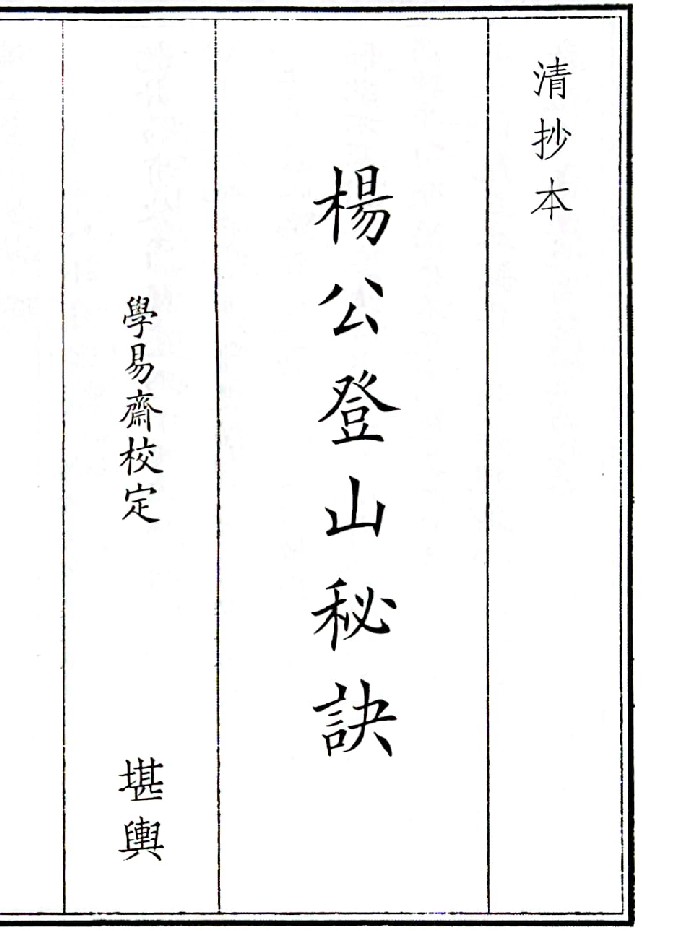 清抄本
楊公登山秘訣
學易齋校定
堪輿